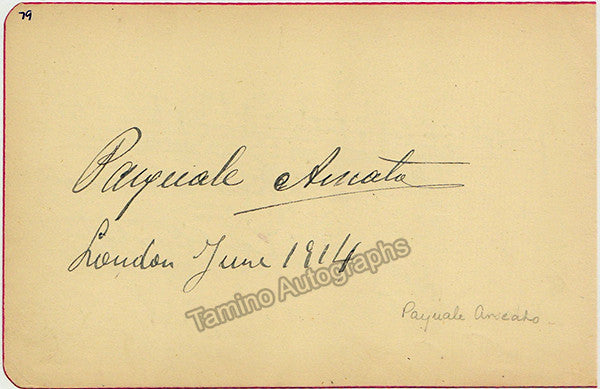 79
Pasquale Amato
London June 1914
Tamino Autographs
Pasquale Amato